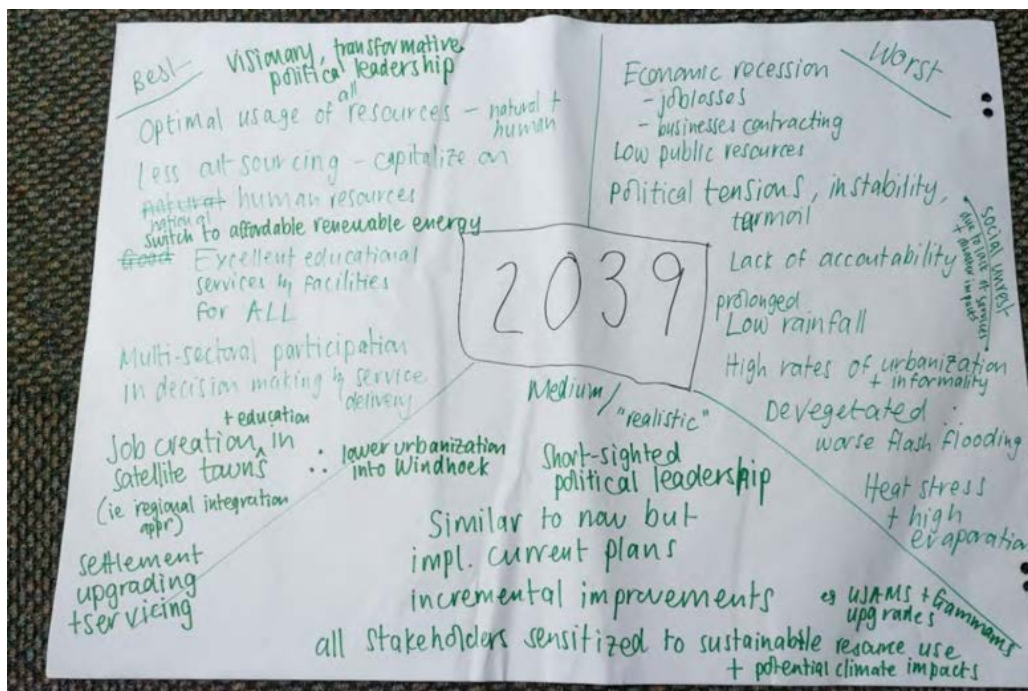 Best
Visionary, transformative
political leadership
all
Optimal usage of resources – natural +
human
Less out sourcing – capitalize on
natural human resources
national
switch to affordable renewable energy
Good Excellent educational
services & facilities
for ALL
Multi-sectoral participation
in decision making & service
delivery
+ education
Job creation, in
satellite towns
(ie regional integration
appr)
∴ lower urbanization
into Windhoek
settlement
upgrading
+ servicing
2039
Worst
Economic recession
- joblosses
- businesses contracting
Low public resources
Political tensions, instability,
turmoil
social unrest
due to lack of services
+ disaster impacts
Lack of accountability
prolonged
Low rainfall
High rates of urbanization
+ informality
Devegetated ∴
worse flash flooding
Heat stress
+ high
evaporation
Medium/
"realistic"
Short-sighted
political leadership
Similar to now but
impl. current plans
incremental improvements
eg WAMS + Gammams
upgrades
all stakeholders sensitized to sustainable resource use
+ potential climate impacts